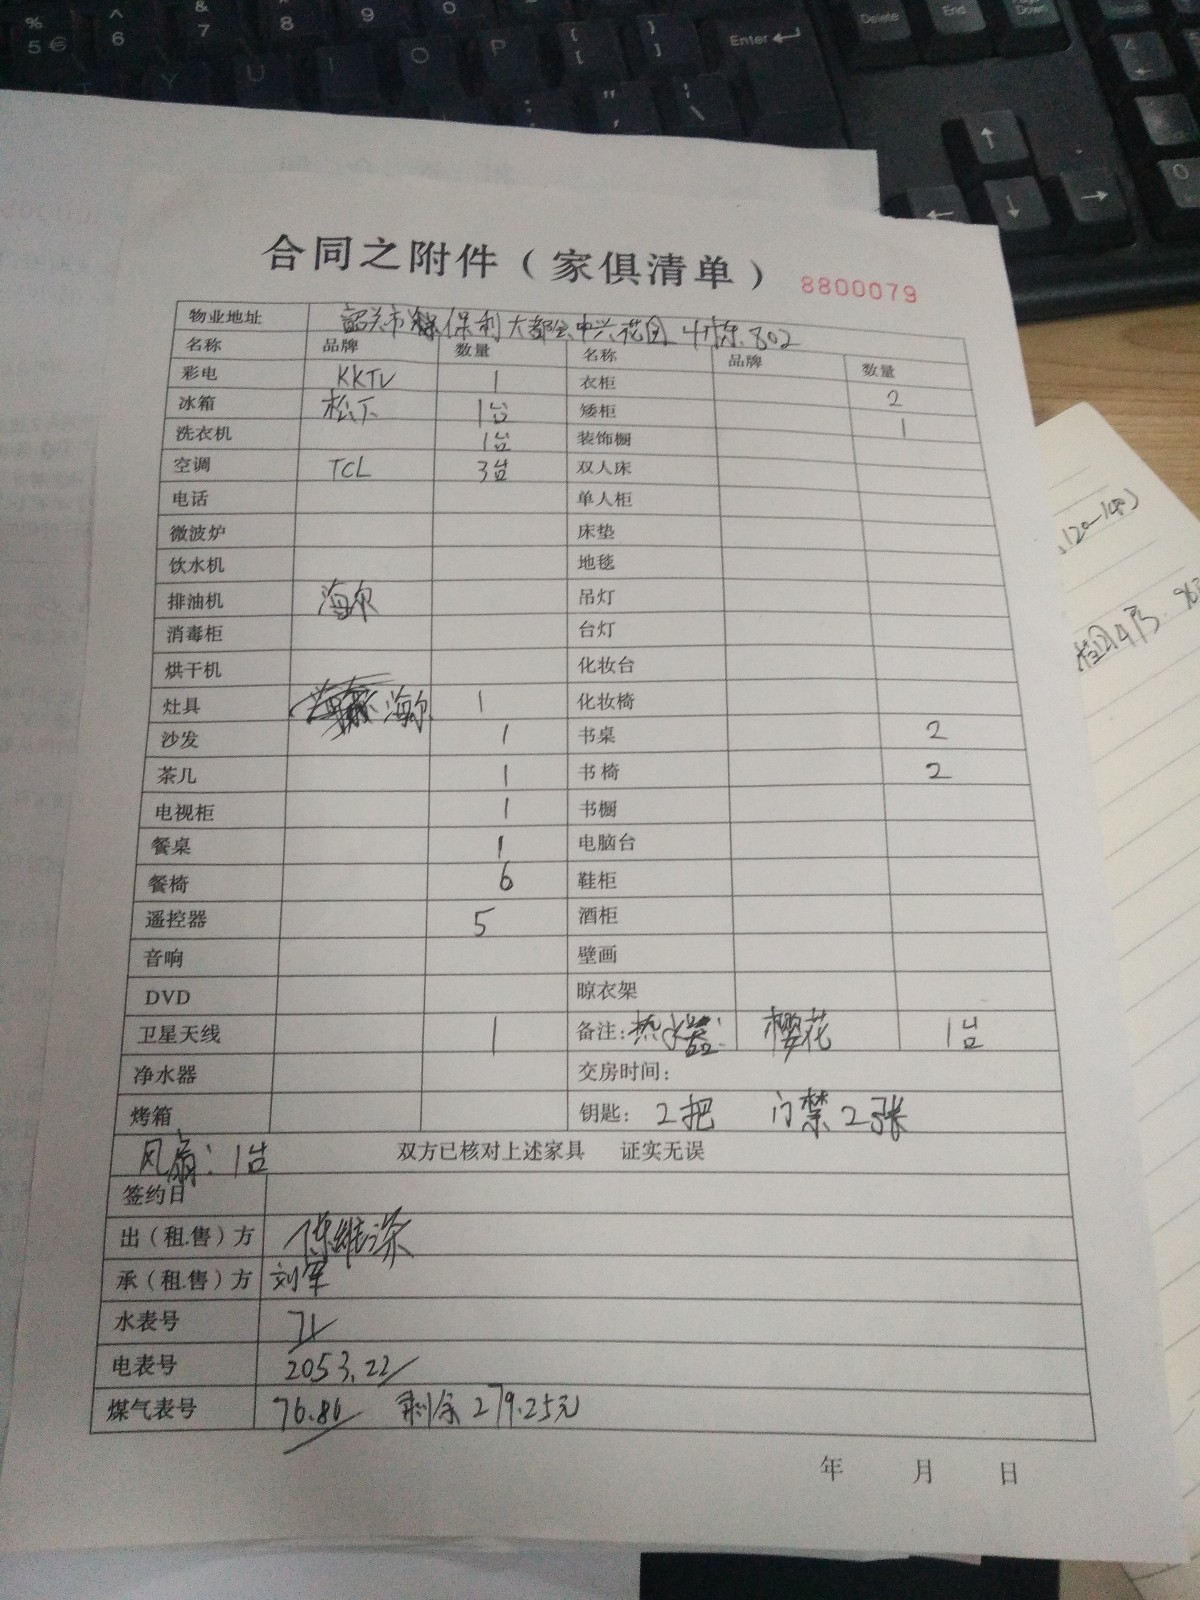 合同之附件（家俱清单） 8800079
物业地址 韶关市保利大都会中兴花园4栋802
名称 品牌 数量 名称 品牌 数量
彩电 KKTV 1 衣柜 2
冰箱 松下 1台 矮柜 1
洗衣机 1台 装饰橱
空调 TCL 3台 双人床
电话 单人柜
微波炉 床垫
饮水机 地毯
排油机 海尔 吊灯
消毒柜 台灯
烘干机 化妆台
灶具 海尔 1 化妆椅
沙发 1 书桌 2
茶几 1 书椅 2
电视柜 1 书橱
餐桌 1 电脑台
餐椅 6 鞋柜
遥控器 5 酒柜
音响 壁画
DVD 晾衣架
卫星天线 1 备注：热水器： 樱花 1台
净水器 交房时间：
烤箱 钥匙： 2把 门禁2张
风扇：1台 双方已核对上述家具 证实无误
签约日
出（租.售）方
承（租.售）方 刘军
水表号 71
电表号 2053.22
煤气表号 76.86 剩余279.25元
年 月 日
Enter
Delete
End